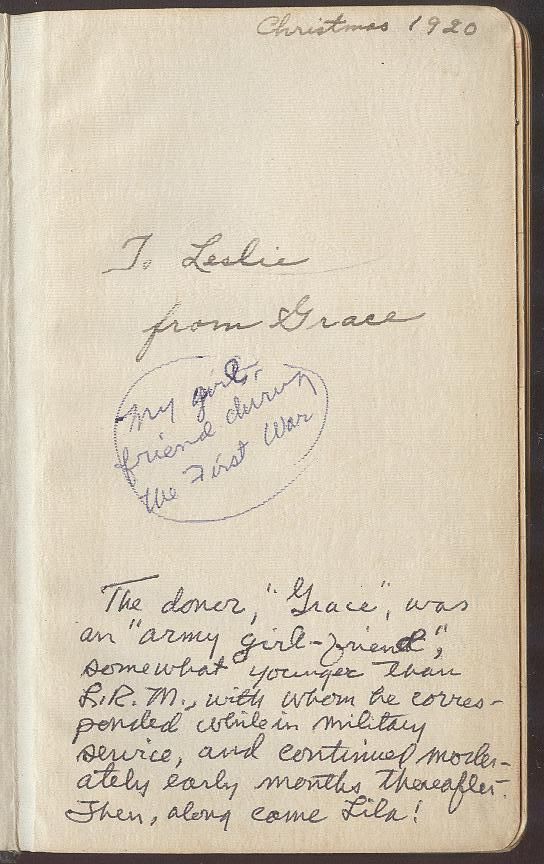 Christmas 1920
To Leslie
from Grace
My girl-
friend during
the First War
The donor, "Grace", was
an "army girl-friend",
somewhat younger than
L.R.M., with whom he corres-
ponded while in military
service, and continued moder-
ately early months thereafter.
Then, along came Lila!